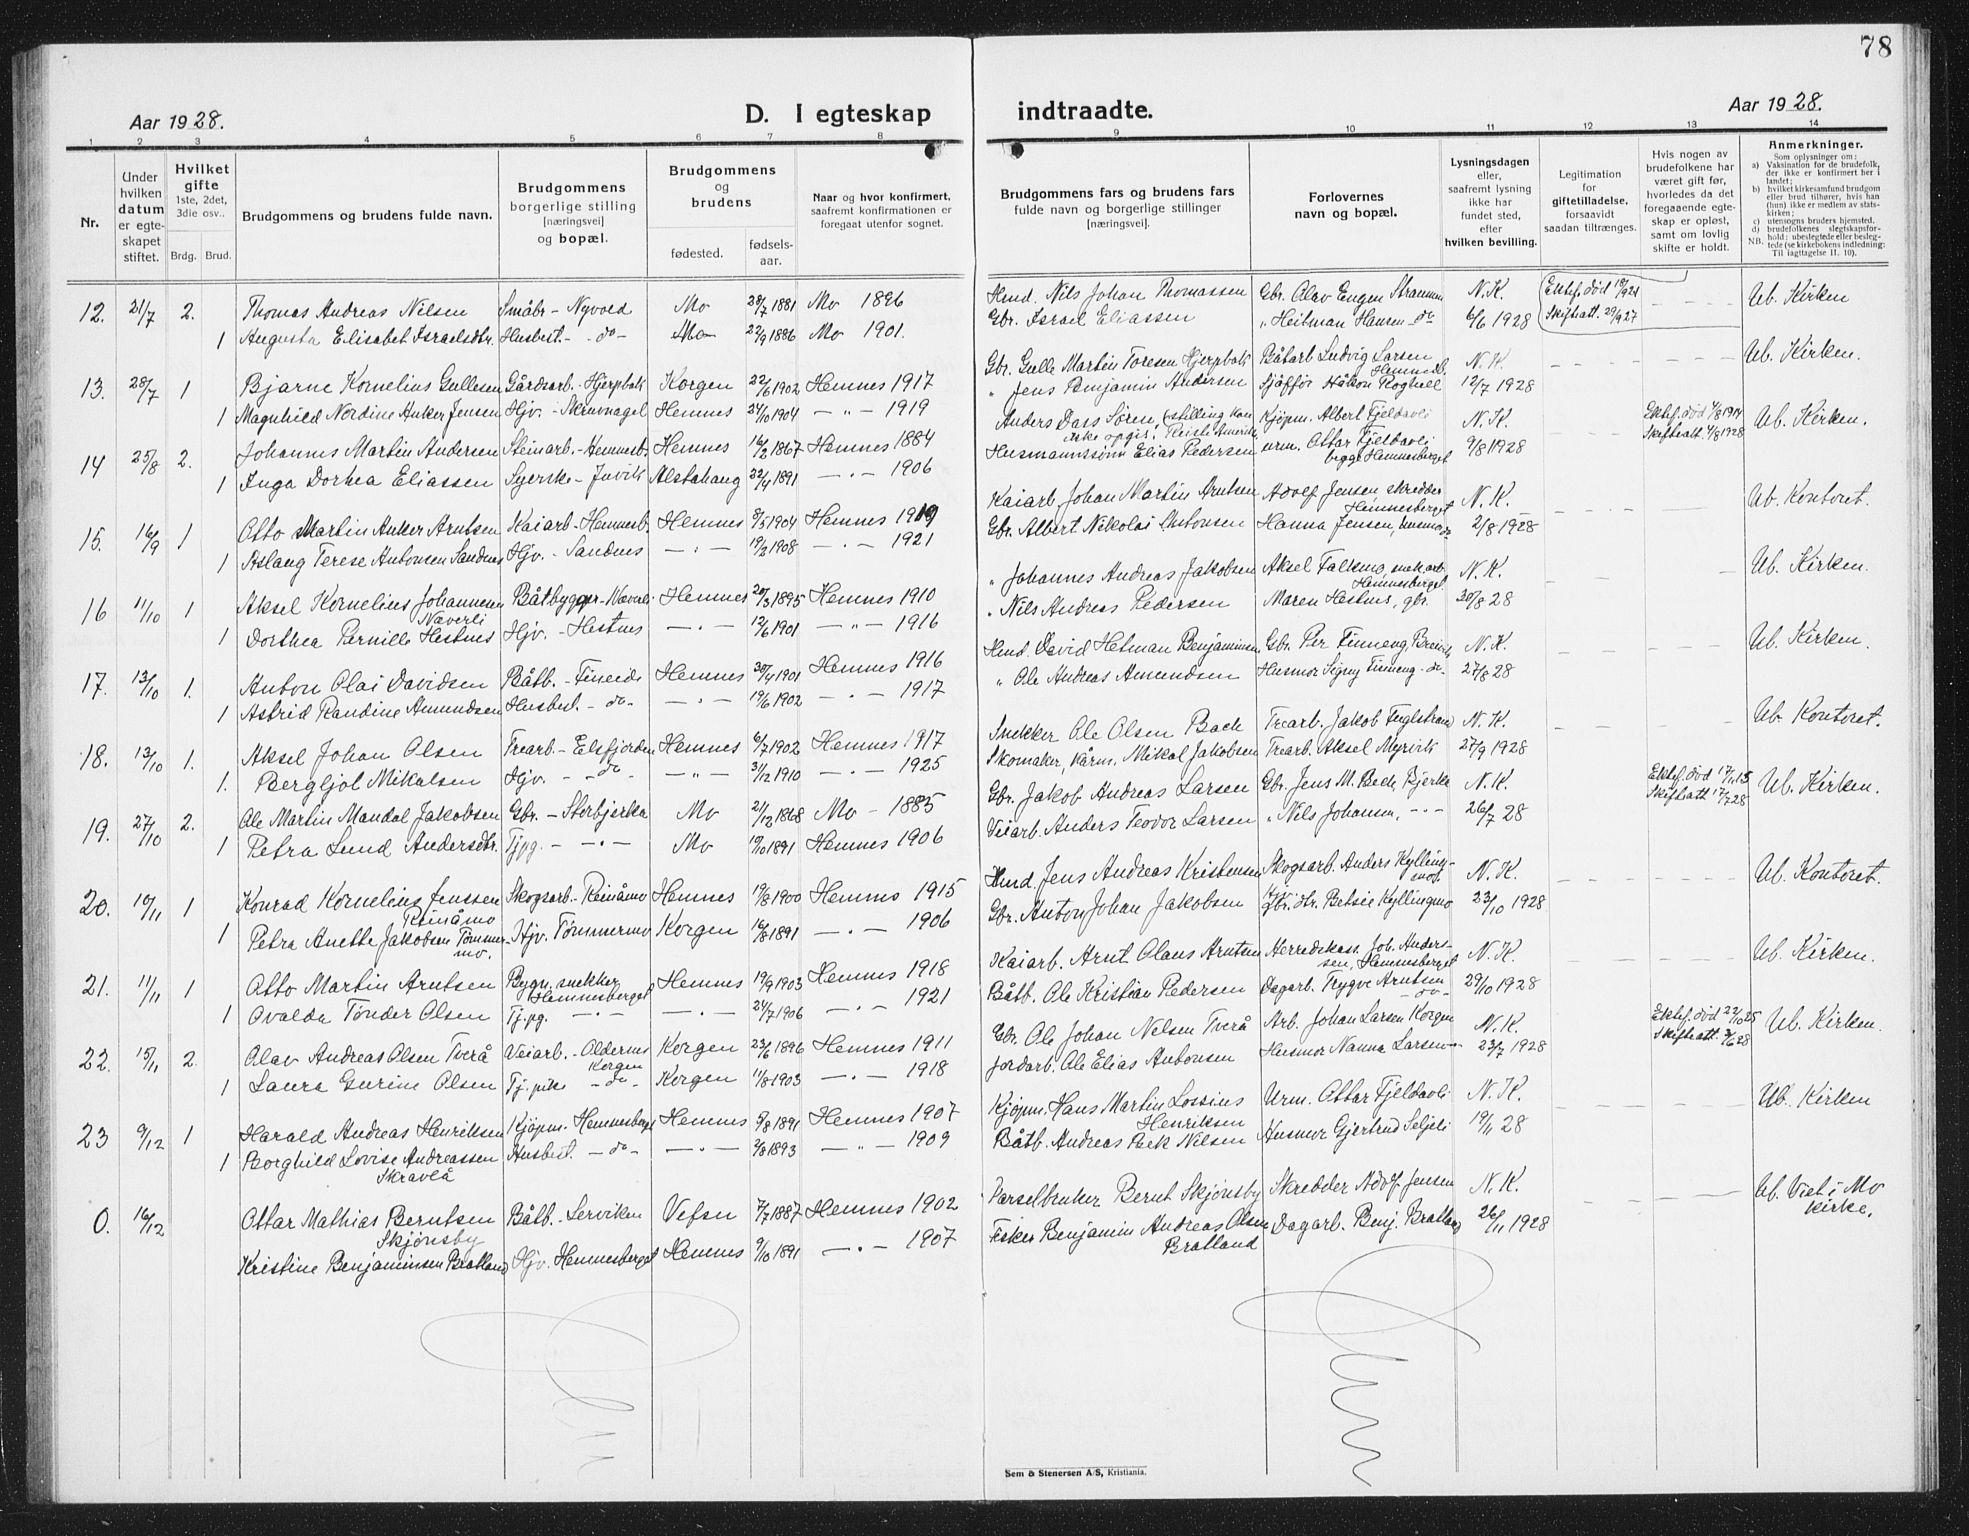 78
Aar 1928.
D. I egteskap
indtraadte.
Aar 1928.
1 2 3 4 5 6 7 8 9 10 11 12 13 14
Nr.
Under hvilken datum er egteskapet stiftet.
Hvilket gifte 1ste, 2det, 3die osv..
Brdg. Brud.
Brudgommens og brudens fulde navn.
Brudgommens borgerlige stilling [næringsvei] og bopæl.
Brudgommens og brudens
fødested. fødselsaar.
Naar og hvor konfirmert, saafremt konfirmationen er foregaat utenfor sognet.
Brudgommens fars og brudens fars fulde navn og borgerlige stillinger [næringsvei].
Forlovernes navn og bopæl.
Lysningsdagen eller, saafremt lysning ikke har fundet sted, efter hvilken bevilling.
Legitimation for giftetilladelse, forsaavidt saadan tiltrænges.
Hvis nogen av brudefolkene har været gift før, hvorledes da det foregaaende egteskap er opløst, samt om lovlig skifte er holdt.
Anmerkninger.
Som oplysninger om:
a) Vaksination for de brudefolk, der ikke er konfirmert her i landet;
b) hvilket kirkesamfund brudgom eller brud tilhører, hvis han (hun) ikke er medlem av statskirken;
c) utensogns bruders hjemsted.
d) brudefolkenes slegtskapsforhold: ubeslegtede eller beslegtede (se kirkebokens indledning:
NB. Til iagttagelse II. 10).
12. 21/7 2. Thomas Andreas Nilsen Småbr - Nyvold Mo 28/7 1881 Mo 1896 Hmd. Nils Johan Thomassen Gbr. Olav Eugen Strammen N.K. Ektef. død 18/9 21 Ub. Kirken
1 Augusta Elisabet Israelsdtr. Husbest. - do - Mo 22/9 1886 Mo 1901. Gbr. Israel Eliassen " Heitman Hansen - do 6/6 1928 Skifteatt. 29/9 27
13. 28/7 1 Bjarne Kornelius Gullesen Gårdsarb. - Hjerpbak Korgen 22/6 1902 Hemnes 1917 Gbr. Gulle Martin Toresen Hjerpbak Båtarb Ludvig Larsen Hemnesb. N.K. Ub. Kirken.
1 Magnhild Nordine Anker Jensen Hjv. - Skinnagel Hemnes 24/10 1904 - " - 1919 " Jens Benjamin Andersen Sjåffør Håkon Roghell 12/7 1928
14 25/8 2. Johannes Martin Andersen Steinarb. - Hemnesb. Hemnes 16/2 1867 Hemnes 1884 Anders Dass Søren, (stilling kan ikke opgis. Reiste Amerika Kjøpm. Albert Fjeldavli N.K. Ektef. død 4/8 1914 Ub. Kirken.
1 Inga Dorhea Eliassen Syerske - Juvik Alstahaug 22/4 1891 - " - 1906 Husmannssønn Elias Pedersen urm. Ottar Fjeldavli begge Hemnesberget 9/8 1928 Skifteatt. 4/8 1928
15. 16/9 1 Otto Martin Anker Arntsen Kaiarb - Hemnesb. Hemnes 8/5 1904 Hemnes 1919 Kaiarb. Johan Martin Arntsen Adolf Jensen, skredder Hemnesberget N.K. Ub. Kontoret.
1 Aslaug Terese Antonsen Sandnes Hjv. - Sandnes - " - 19/2 1908 - " - 1921 Gbr. Albert Nikolai Antonsen Hanna Jensen, husmor do 2/8 1928
16 11/10 1 Aksel Kornelius Johannesen Næverli Båtbygger - Næverli Hemnes 20/3 1895 Hemnes 1910 " Johannes Andreas Jakobsen Aksel Falkmo, snek.arb. Hemnesberget. N.K. Ub. Kirken.
1 Dorthea Pernille Hestnes Hjv. - Hestnes - " - 12/6 1901 - " - 1916 " Nils Andreas Pedersen Maren Hestnes, gbr. 30/8 28
17. 13/10 1. Anton Olai Davidsen Båtb. - Fineide Hemnes 30/4 1901 Hemnes 1916 Hmd. David Hetman Benjaminsen Gbr. Per Finneng, N.K. Ub. Kirken.
1 Astrid Randine Amundsen Husbest. - do - - " - 19/6 1902 - " - 1917 " Ole Andreas Amundsen Husmor Signy Finneng - do - 27/8 28
18. 13/10 1. Aksel Johan Olsen Trearb. - Elsfjorden Hemnes 6/7 1902 Hemnes 1917 Snekker Ole Olsen Bach Trearb. Jakob Fuglstrand N.K. Ub. Kontoret.
1. Bergljot Mikalsen Hjv. - do - - " - 31/12 1910 - " - 1925 Skomaker, Mikal Jakobsen Trearb. Aksel Myrvik 27/9 1928
19. 27/10 2. Ole Martin Mandal Jakobsen Gbr. - Storbjerka Mo 21/12 1868 Mo - 1885 Gbr. Jakob Andreas Larsen Gbr. Jens M. Bech, Bjerka N.K. Ektef. død 17/1 15 Ub. Kirken.
1 Petra Lund Andersdtr. Tjpg. - " - Mo 19/10 1891 Hemnes 1906 Veiarb. Anders Teodor Larsen " Nils Johansen, - " - 26/7 28 Skifteatt 17/7 28
20. 10/11 1 Konrad Kornelius Jenssen Reinåmo Skogsarb. - Reinåmo Hemnes 19/8 1900 Hemnes 1915 Hmd. Jens Andreas Kristensen Skogsarb. Anders Kyllingmo. N.K. Ub. Kontoret.
1 Petra Anette Jakobsen Tømmermo. Hjv. Tømmermo Korgen 16/8 1891 - " - 1906 Gbr. Anton Johan Jakobsen Gbr. dtr. Betsie Kyllingmo 23/10 1928
21. 11/11 1 Otto Martin Arntsen Bygn. snekker Hemnesberget Hemnes 19/9 1903 Hemnes 1918 Kaiarb. Arnt Olaus Arntsen Herredskass. Joh. Anderssen, Hemnesberget N.K. Ub. Kirken.
1 Ovalda Tønder Olsen Tj.pg. - " - - " - 24/7 1906 - " - 1921 Båtb. Ole Kristian Pedersen Dagarb. Trygve Arntsen - do - 29/10 1928
22. 15/11 2. Olav Andreas Olsen Tverå Veiarb. - Oldernes Korgen Korgen 23/6 1896 Hemnes 1911 Gbr. Ole Johan Nilsen Tverå Arb. Johan Larsen Korgen N.K. Ektef. død 22/10 25 Ub. Kirken.
1 Laura Gurine Olsen Tj.pike - do - Korgen 11/8 1903 - " - 1918 Jordarb. Ole Elias Antonsen Husmor Nanna Larsen - " - 23/7 1928 Skifteatt. 2/6 28
23 9/12 1 Harald Andreas Henriksen Kjøpm. Hemnesberget Hemnes 9/8 1891 Hemnes 1907 Kjøpm. Hans Martin Lossius Henriksen Urm. Ottar Fjeldavli N.K. Ub. Kirken
1 Borghild Lovise Andreassen Skravlå Husbest. - do - - " - 2/8 1893 - " - 1909 Båtb. Andreas Bek Nilsen Husmor Gjertrud Seljeli 19/11 28
0. 16/12 Ottar Mathias Berntsen Skjønsby Båtb. - Serviken Vefsn 7/7 1887 Hemnes 1902 Parselbruker Bernt Skjønsby Skredder Adolf Jensen N.K. Ub. Viet i Mo kirke.
Kristine Benjaminsen Bratland Hjv. Hemnesberget Hemnes 9/10 1891 - " - 1907 Fisker Benjamin Andreas Olsen Bratland Dagarb. Benj. Bratland 26/11 1928
Sem & Stenersen A/S, Kristiania.